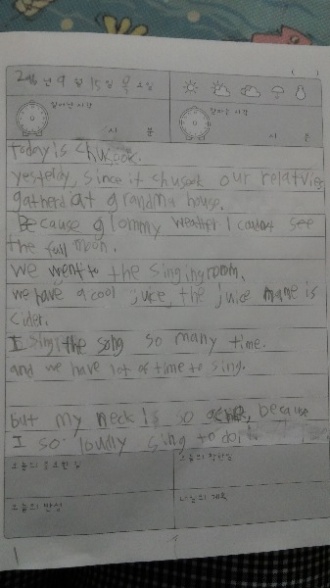 2016년 9월 15일 목요일
일어난시각
잠자는시각
시 분
시 분
Today is chuseok.
yesterday, since it chuseok our relatvies
gatherd at grandma house.
Because glommy weather I couldnt see
the full moon.
we went to the singingroom.
we have a cool juice, the juice name is
cider.
I sing the song so many time.
and we have lot of time to sing.
but my neck is so ache, because
I so loudly sing to do it
오늘의 중요한일
오늘의 착한일
오늘의 반성
나일의 계획